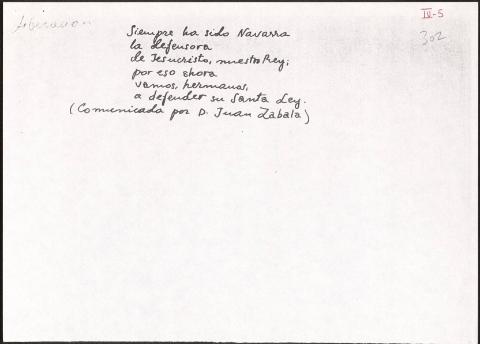 IV-5
302
Siempre ha sido Navarra
la defensora
de Jesucristo, nuestro Rey;
por eso ahora
vamos, hermanos,
a defender su Santa Ley.
(Comunicada por D. Juan Zabala)